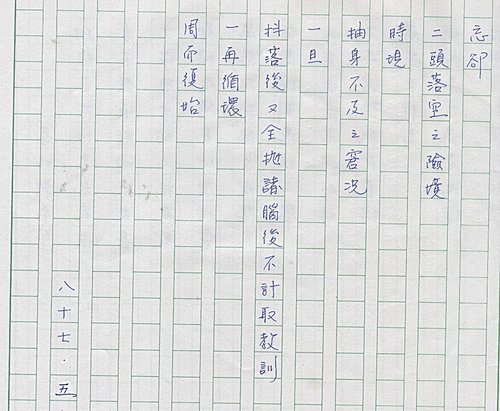 忘卻
二頭落空之險境
時現
抽身不及之窘況
一旦
抖落後又全拋諸腦後不計取教訓
一再循環
周而復始
八十七．五